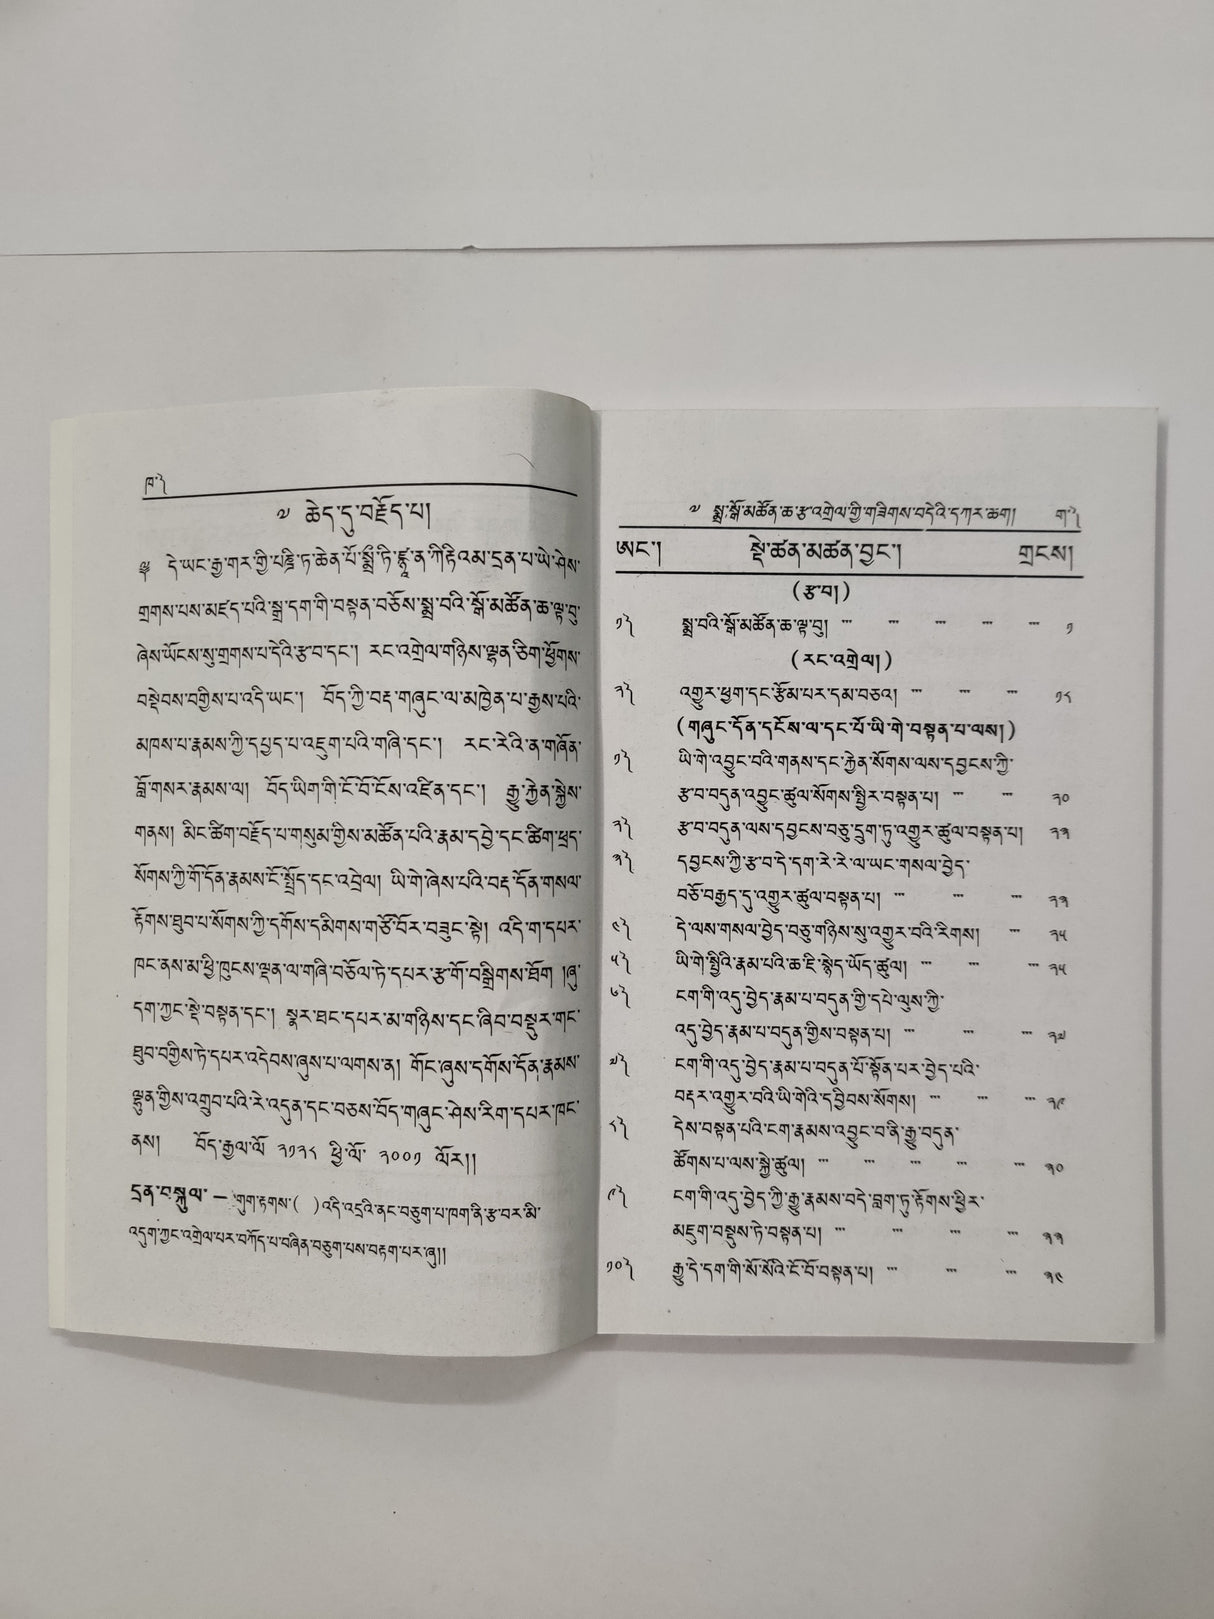 ཁ༽
༡ ཆེད་དུ་བརྗོད་པ།
༄ དེ་ཡང་རྒྱ་གར་གྱི་པཎྜི་ཏ་ཆེན་པོ་སྨྲྀ་ཏི་ཛྙཱ་ན་ཀཱིརྟི་འམ་དྲན་པ་ཡེ་ཤེས་
གྲགས་པས་མཛད་པའི་སྒྲ་དག་གི་བསྟན་བཅོས་སྨྲ་བའི་སྒོ་མཚོན་ཆ་ལྟ་བུ་
ཞེས་ཡོངས་སུ་གྲགས་པ་དེའི་རྩ་བ་དང་། རང་འགྲེལ་གཉིས་ལྷན་ཅིག་ཕྱོགས་
བསྡེབས་བགྱིས་པ་འདི་ཡང་། བོད་ཀྱི་བརྡ་གཞུང་ལ་མཁྱེན་པ་རྒྱས་པའི་
མཁས་པ་རྣམས་ཀྱི་དཔྱད་པ་འཇུག་པའི་གཞི་དང་། རང་རེའི་ན་གཞོན་
བློ་གསར་རྣམས་ལ། བོད་ཡིག་གི་ངོ་བོ་ངོས་འཛིན་དང་། རྒྱུ་རྐྱེན་སྐྱེས་
གནས། མིང་ཚིག་བརྗོད་པ་གསུམ་གྱིས་མཚོན་པའི་རྣམ་དབྱེ་དང་ཚིག་ཕྲད་
སོགས་ཀྱི་གོ་དོན་རྣམས་ངོ་སྤྲོད་དང་འབྲེལ། ཡི་གེ་ཞེས་པའི་བརྡ་དོན་གསལ་
རྟོགས་ཐུབ་པ་སོགས་ཀྱི་དགོས་དམིགས་གཙོ་བོར་བཟུང་སྟེ། འདི་ག་དཔར་
ཁང་ནས་མ་ཕྱི་ཁུངས་ལྡན་ལ་གཞི་བཅོལ་ཏེ་དཔར་རྩ་གོ་བསྒྲིགས་ཐོག །ཞུ་
དག་ཀྱང་སྡེ་བསྟན་དང་། སྣར་ཐང་དཔར་མ་གཉིས་དང་ཞིབ་བསྡུར་གང་
ཐུབ་བགྱིས་ཏེ་དཔར་འདེབས་ཞུས་པ་ལགས་ན། གོང་ཞུས་དགོས་དོན་རྣམས་
ལྷུན་གྱིས་འགྲུབ་པའི་རེ་འདུན་དང་བཅས་བོད་གཞུང་ཤེས་རིག་དཔར་ཁང་
ནས། བོད་རྒྱལ་ལོ་ ༢༡༢༨ ཕྱི་ལོ་ ༢༠༠༡ ལོར།།
དྲན་བསྐུལ་ — གུག་རྟགས་( )འདི་འདྲའི་ནང་བཅུག་པ་ཁག་ནི་རྩ་བར་མི་
འདུག་ཀྱང་འགྲེལ་པར་བཀོད་པ་བཞིན་བཅུག་པས་བརྟག་པར་ཞུ།།
༡ སྨྲ་སྒོ་མཚོན་ཆ་རྩ་འགྲེལ་གྱི་གཟིགས་བདེའི་དཀར་ཆག། ག༽
ཨང་། སྡེ་ཚན་མཚན་བྱང་། གྲངས།
(རྩ་བ།)
༡༽ སྨྲ་བའི་སྒོ་མཚོན་ཆ་ལྟ་བུ། ... ... ... ... ... ༡
(རང་འགྲེལ།)
༢༽ འགྱུར་ཕྱག་དང་རྩོམ་པར་དམ་བཅའ། ... ... ... ༡༨
(གཞུང་དོན་དངོས་ལ་དང་པོ་ཡི་གེ་བསྟན་པ་ལས།)
༡༽ ཡི་གེ་འབྱུང་བའི་གནས་དང་རྐྱེན་སོགས་ལས་དབྱངས་ཀྱི་
རྩ་བ་བདུན་འབྱུང་ཚུལ་སོགས་སྤྱིར་བསྟན་པ། ... ... ༢༠
༢༽ རྩ་བ་བདུན་ལས་དབྱངས་བཅུ་དྲུག་ཏུ་འགྱུར་ཚུལ་བསྟན་པ། ༢༣
༣༽ དབྱངས་ཀྱི་རྩ་བ་དེ་དག་རེ་རེ་ལ་ཡང་གསལ་བྱེད་
བཅོ་བརྒྱད་དུ་འགྱུར་ཚུལ་བསྟན་པ། ... ... ... ༢༣
༤༽ དེ་ལས་གསལ་བྱེད་བཅུ་གཉིས་སུ་འགྱུར་བའི་རིགས། ... ༢༥
༥༽ ཡི་གེ་སྤྱིའི་རྣམ་པའི་ཆ་ཇི་སྙེད་ཡོད་ཚུལ། ... ... ... ༢༥
༦༽ ངག་གི་འདུ་བྱེད་རྣམ་པ་བདུན་གྱི་དཔེ་ལུས་ཀྱི་
འདུ་བྱེད་རྣམ་པ་བདུན་གྱིས་བསྟན་པ། ... ... ... ༢༧
༧༽ ངག་གི་འདུ་བྱེད་རྣམ་པ་བདུན་པོ་སྟོན་པར་བྱེད་པའི་
བརྡར་འགྱུར་བའི་ཡི་གེའི་དབྱིབས་སོགས། ... ... ... ༢༩
༨༽ དེས་བསྟན་པའི་ངག་རྣམས་འབྱུང་བ་ནི་རྒྱུ་བདུན་
ཚོགས་པ་ལས་སྐྱེ་ཚུལ། ... ... ... ... ... ༣༠
༩༽ ངག་གི་འདུ་བྱེད་ཀྱི་རྒྱུ་རྣམས་བདེ་བླག་ཏུ་རྟོགས་ཕྱིར་
མཇུག་བསྡུས་ཏེ་བསྟན་པ། ... ... ... ... ༣༣
༡༠༽ རྒྱུ་དེ་དག་གི་སོ་སོའི་ངོ་བོ་བསྟན་པ། ... ... ... ༣༤